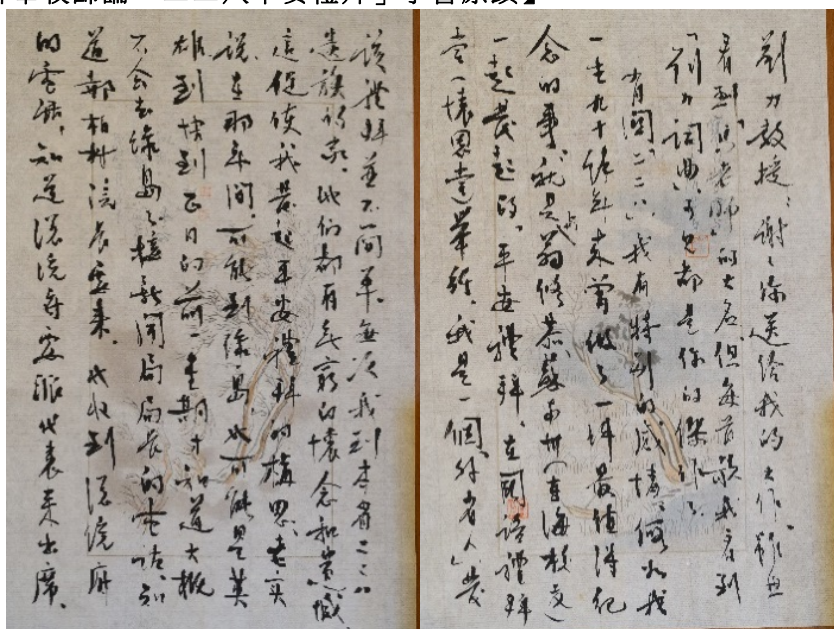 牧師論「二二八平安禮拜」手書原跋】
劉力教授：謝謝你送給我的大作，雖然
看到「劉老師」的大名，但每首歌我看到
「劉力詞曲」可見都是你的傑作。
有關「二二八」我有特別的感情，假如我
一生九十餘年來曾做了一件最值得紀
念的事，就是與翁修恭、蘇南洲
一起發起的，平安禮拜，在國語禮拜
堂、懷恩堂舉辦，我是一個「外省人」發
該禮拜並不簡單。每次我到本省二二八
遺族的家，他們都有無窮的懷念和
這促使我發起平安禮拜的構思。老實
說在那年間，可能到綠島也可能是英
雄到快到正日的前一星期才知道大概
不會去綠島了。接新聞局局長的電話，知
道郝柏村院長要來，也收到總統府
的電話，知道總統府要派代表來出席。